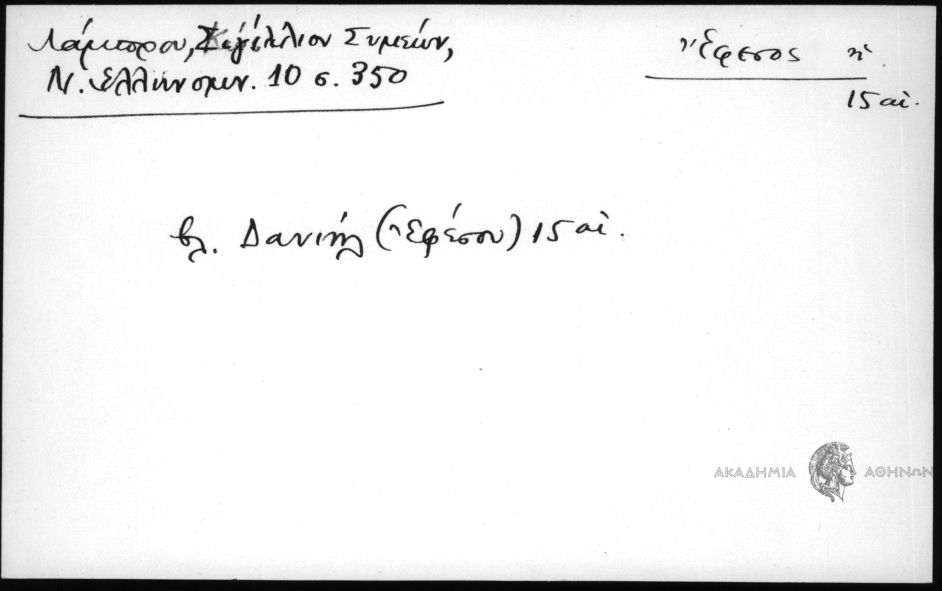 Λάμπρου, Σιγίλλιον Συμεών,
Ν. Ελληνομν. 10 σ. 350
Ἔφεσος ἡ.
15 αἰ.
βλ. Δανιήλ (Ἐφέσου) 15 αἰ.
ΑΚΑΔΗΜΙΑ ΑΘΗΝΩΝ